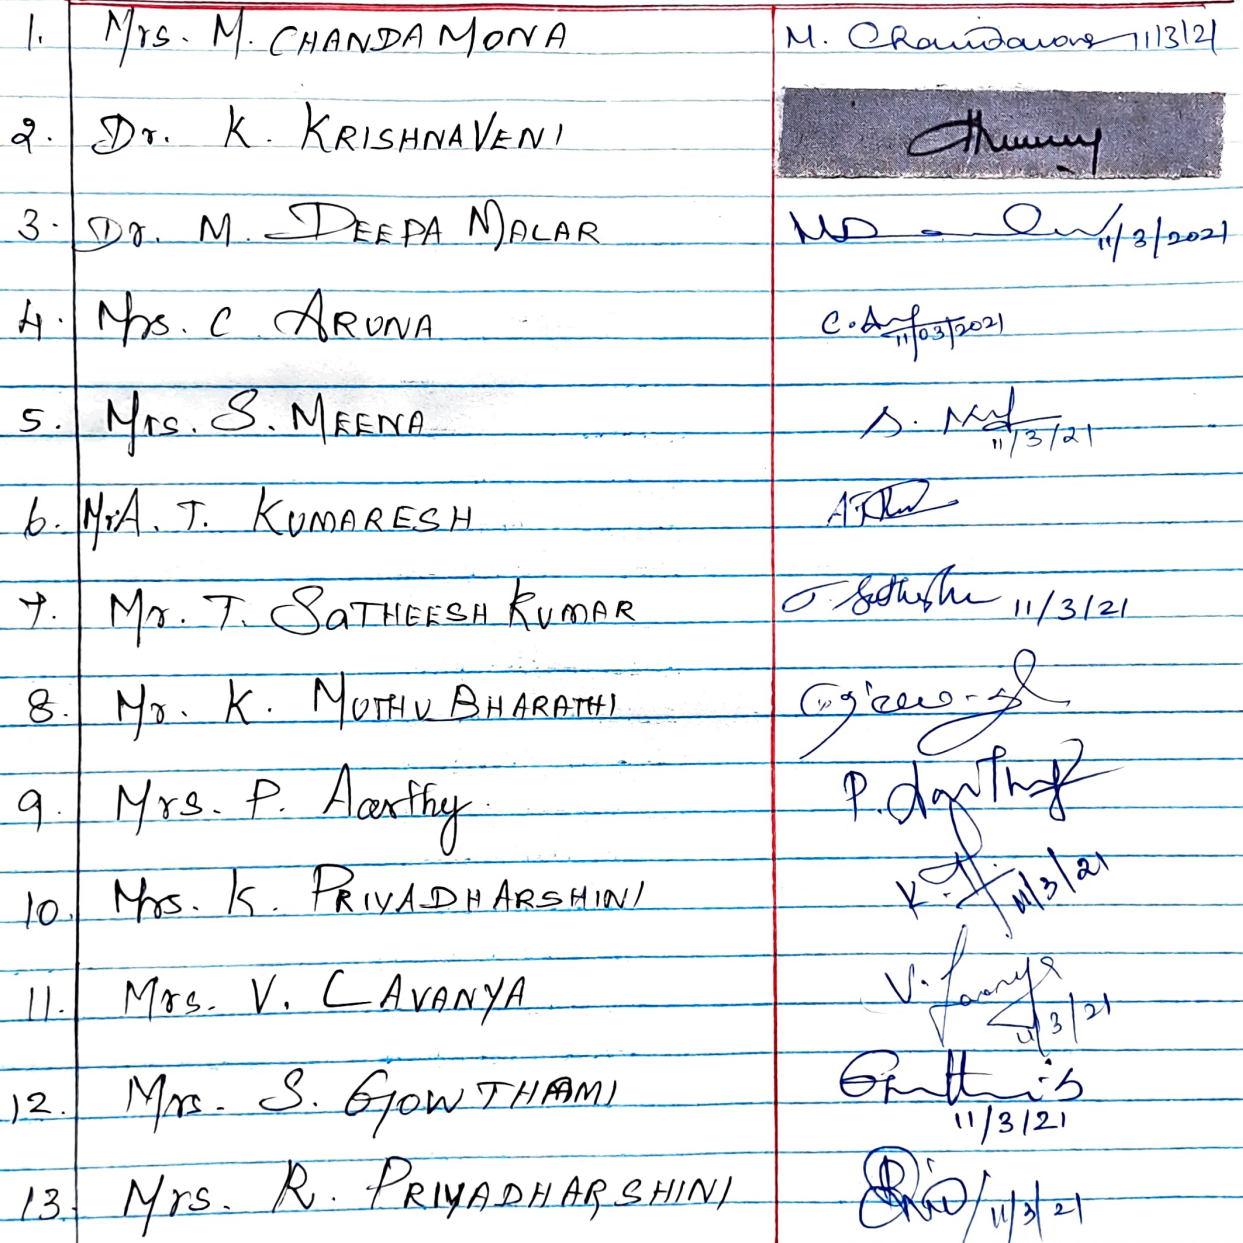 1. Mrs. M. CHANDA MONA M. Chandamona 11/3/21
2. Dr. K. KRISHNAVENI
3. Dr. M. DEEPA MALAR 11/3/2021
4. Mrs. C. ARUNA C. 11/03/2021
5. Mrs. S. MEENA S. 11/3/21
6. Mr A. T. KUMARESH
7. Mr. T. SATHEESH KUMAR 11/3/21
8. Mr. K. MUTHU BHARATHI
9. Mrs. P. Aarthy P.
10. Mrs. K. PRIYADHARSHINI K. 11/3/21
11. Mrs. V. LAVANYA V. 11/3/21
12. Mrs. S. GOWTHAMI
11/3/21
13. Mrs. R. PRIYADHARSHINI 11/3/21